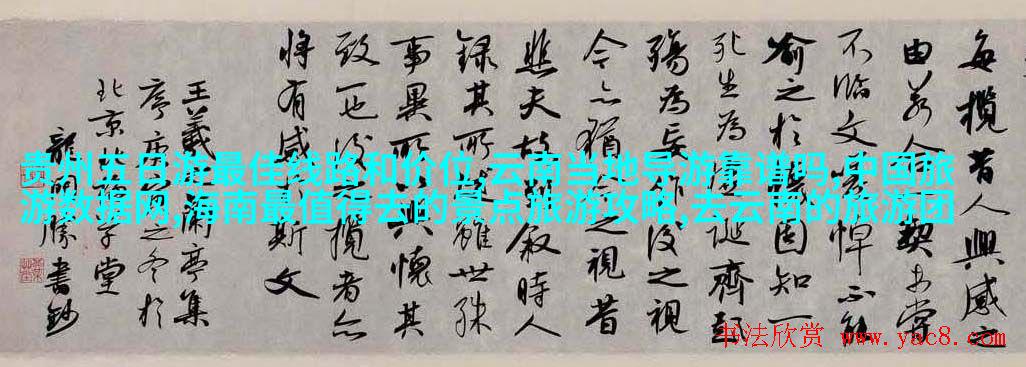 每攬昔人興感之
由若合一契未嘗
不臨文嗟悼不能
喻之於懷固知一
死生為虛誕齊彭
殤為妄作後之視
今亦猶今之視昔
悲夫故列敘時人
錄其所述雖世殊
事異所以興懷其
致一也後之攬者亦
將有感於斯文
王羲之蘭亭集
序之冬於
北京學堂
龍開勝書鈔
贵州五日游最佳线路和价位,云南当地导游靠谱吗,中国旅
游数据网,海南最值得去的景点旅游攻略,去云南的旅游团
书法欣赏
www.yac8.com